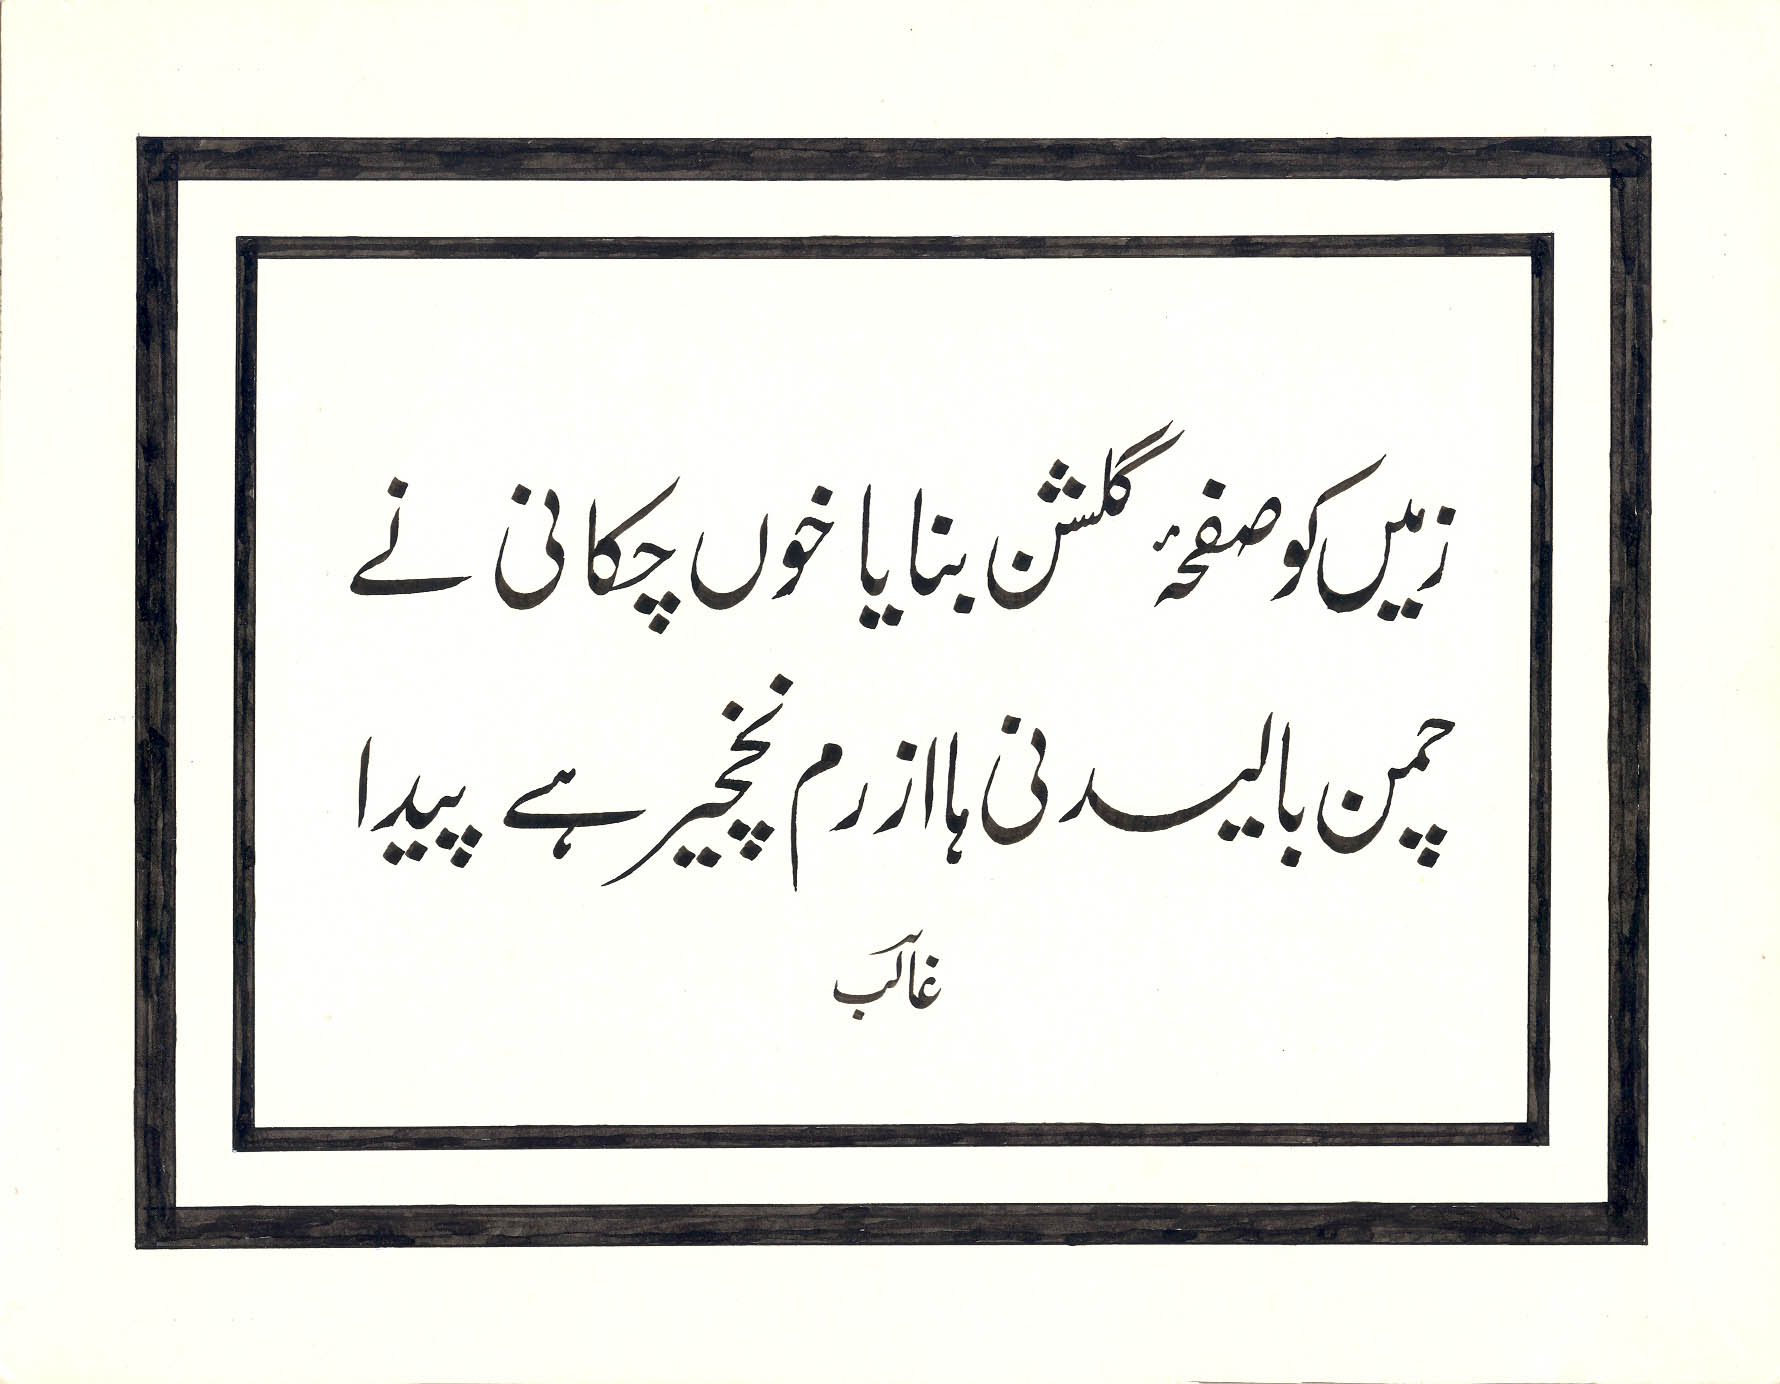 زمیں کو صفحۂ گلشن بنایا خوں چکانی نے
چمن بالیدنی ہا از رم نخچیر ہے پیدا
غالب